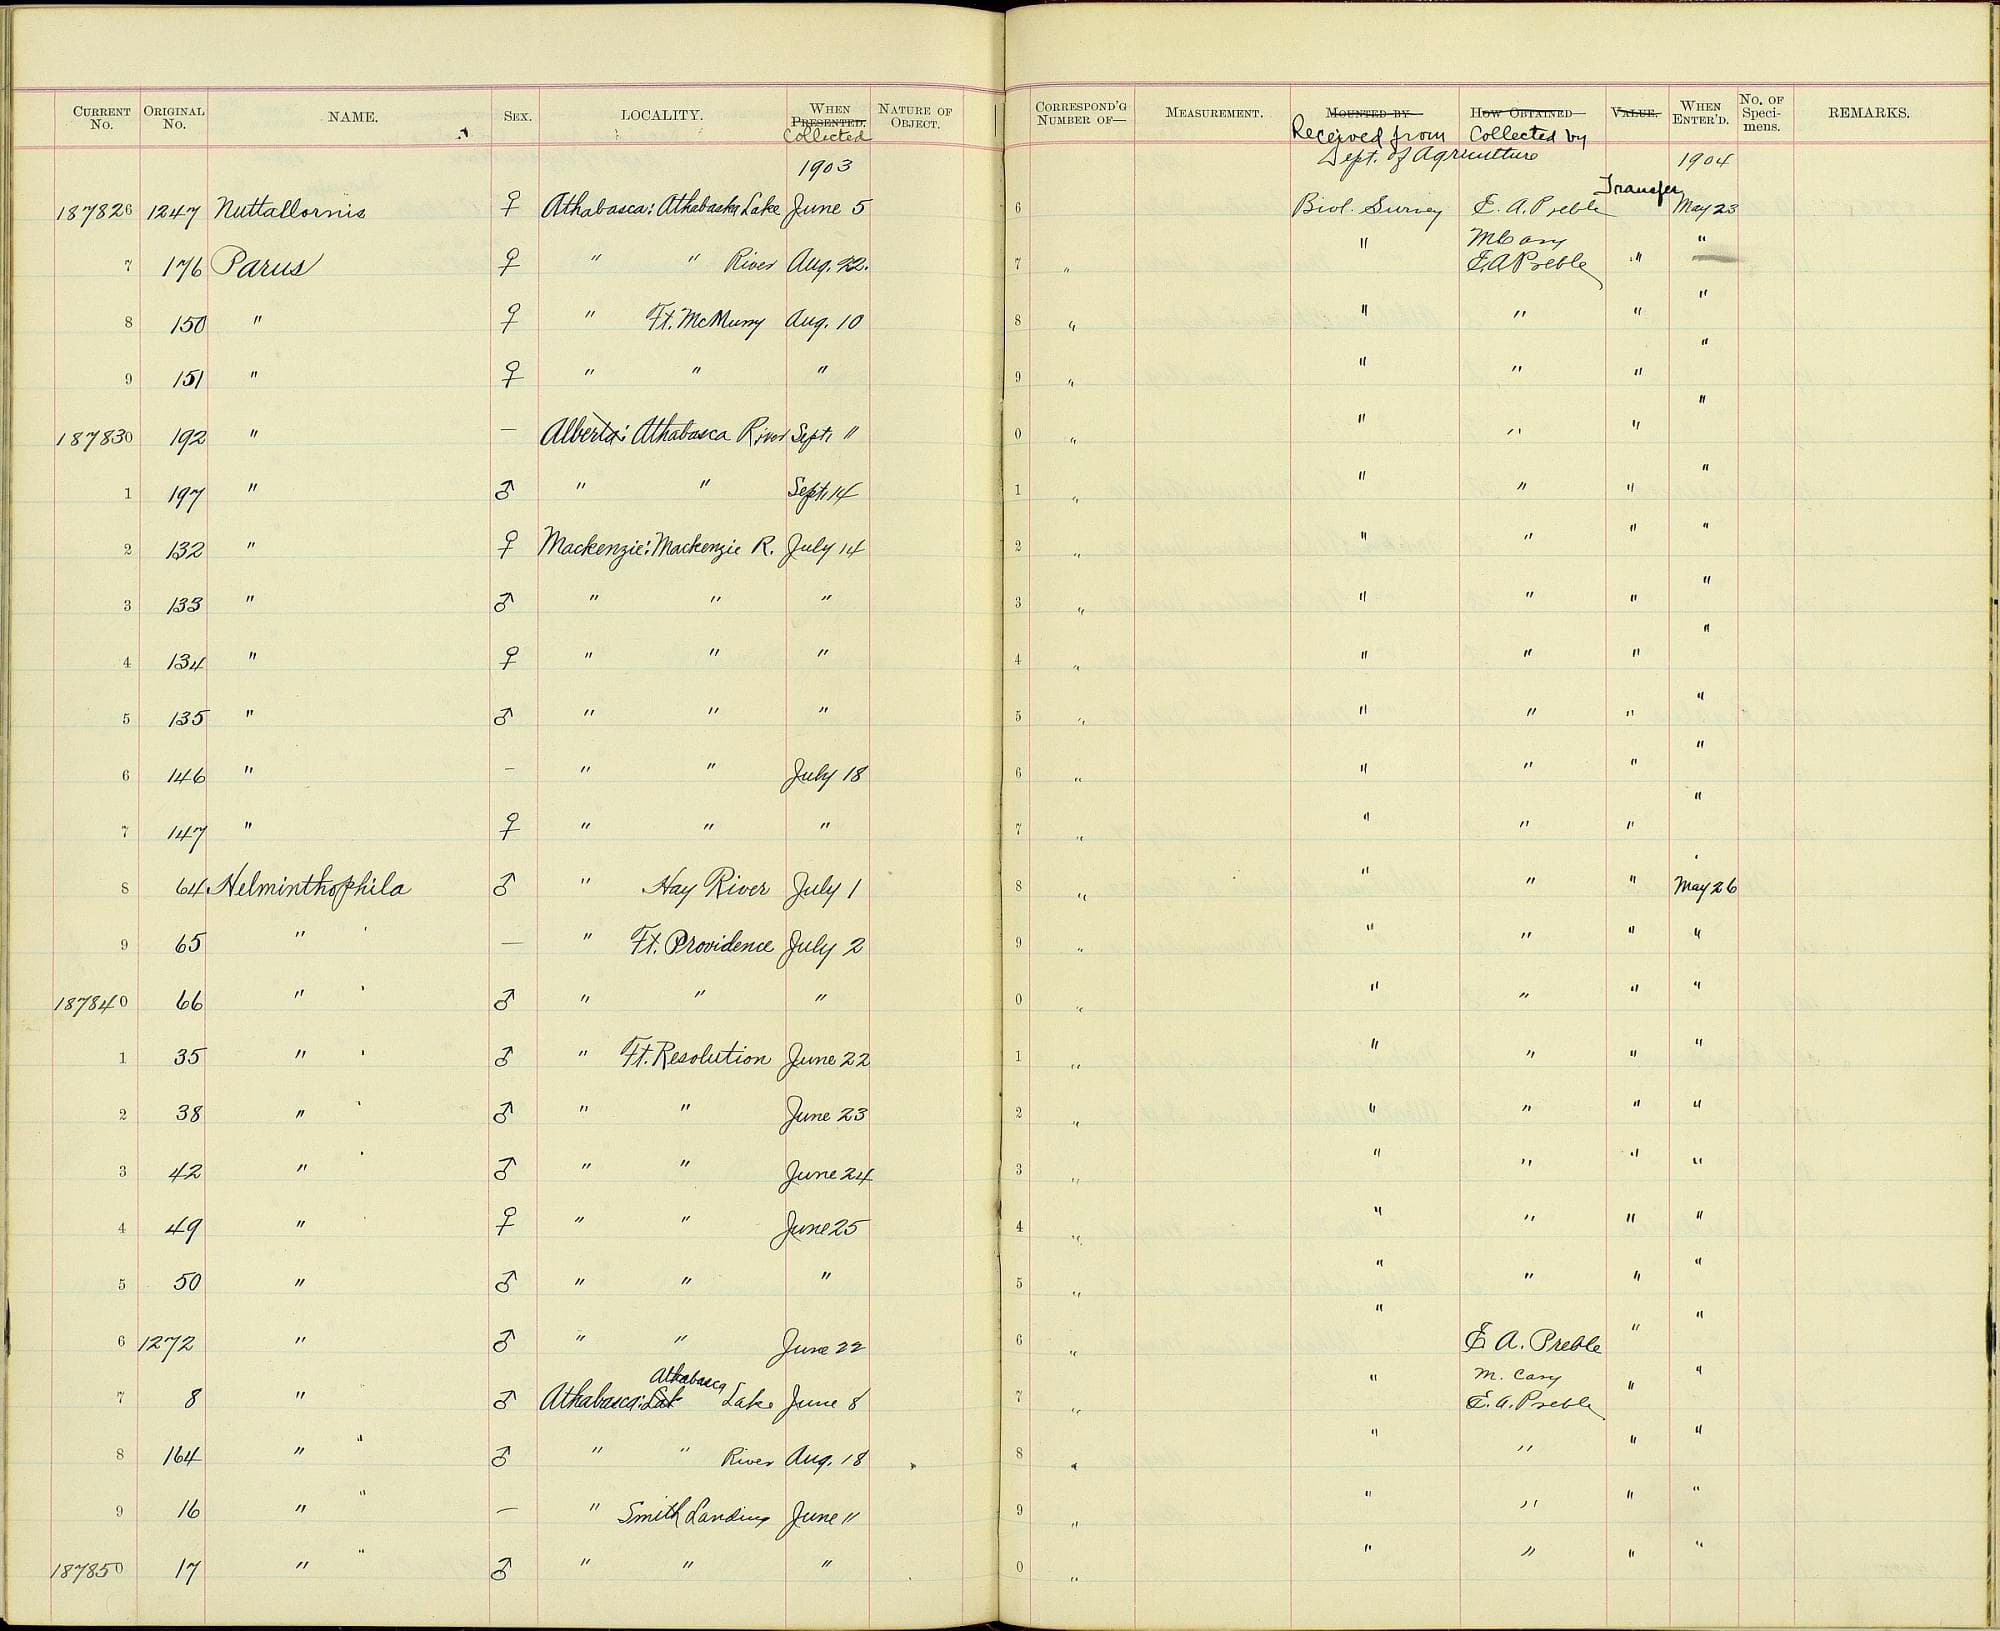 CURRENT No. ORIGINAL No. NAME. SEX. LOCALITY. WHEN PRESENTED. Collected NATURE OF OBJECT. CORRESPOND'G NUMBER OF— MEASUREMENT. MOUNTED BY Received from HOW OBTAINED Collected by VALUE. WHEN ENTER'D. No. OF Speci-mens. REMARKS.
1903 Dept. of Agriculture 1904
187826 1247 Nuttallornis ♀ Athabasca: Athabaska Lake June 5 6 Biol. Survey E. A. Preble Transfer May 23
7 176 Parus ♀ " " River Aug. 22. 7 " " M Cary E. A Preble " "
8 150 " ♀ " Ft. McMurry Aug. 10 8 " " " " "
9 151 " ♀ " " " 9 " " " " "
187830 192 " — Alberta: Athabasca River Sept. 11 0 " " " " "
1 197 " ♂ " " Sept. 14 1 " " " " "
2 132 " ♀ Mackenzie: Mackenzie R. July 14 2 " " " " "
3 133 " ♂ " " " 3 " " " " "
4 134 " ♀ " " " 4 " " " " "
5 135 " ♂ " " " 5 " " " " "
6 146 " — " " July 18 6 " " " " "
7 147 " ♀ " " " 7 " " " " "
8 64 Helminthophila ♂ " Hay River July 1 8 " " " " May 26
9 65 " — " Ft. Providence July 2 9 " " " " "
187840 66 " ♂ " " " 0 " " " " "
1 35 " ♂ " Ft. Resolution June 22 1 " " " " "
2 38 " ♂ " " June 23 2 " " " " "
3 42 " ♂ " " June 24 3 " " " " "
4 49 " ♀ " " June 25 4 " " " " "
5 50 " ♂ " " " 5 " " " " "
6 1272 " ♂ " " June 22 6 " " E. A. Preble " "
7 8 " ♂ Athabasca: Lak Athabasca Lake June 8 7 " " M. Cary E. A. Preble " "
8 164 " " ♂ " " River Aug. 18 8 " " " " "
9 16 " " — " Smith Landing June 11 9 " " " " "
187850 17 " " ♂ " " " 0 " " " " "